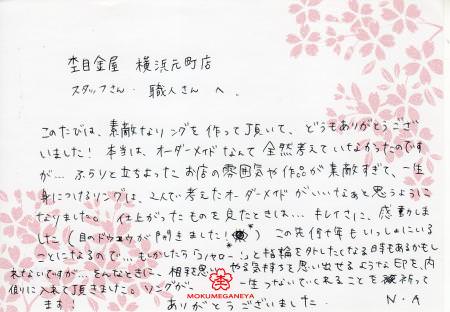 杢目金屋 横浜元町店
スタッフさん・職人さん へ.
このたびは、素敵なリングを作って頂いて、どうもありがとうござ
いました！本当は、オーダーメイドなんて全然考えていなかったのです
が… ふらりと立ちよったお店の雰囲気や作品が素敵すぎて、一生
身につけるリングは、2人で考えたオーダーメイドがいいなぁと思うように
なりました。仕上がったものを見たときは… キレイさに、感動しま
した（目のドウコウが開きました！） この先何十年もいっしょにいる
ことになるので… もしかしたら「コノヤロー！」と指輪を外したくなる時もあるかもし
れないですが… そんなときに、相手を思いやる気持ちを思い出せるような印を、内
側に入れて頂きました。リングが、一生つないでくれることを祈って
ます！ ありがとうございました. N・A
MOKUMEGANEYA